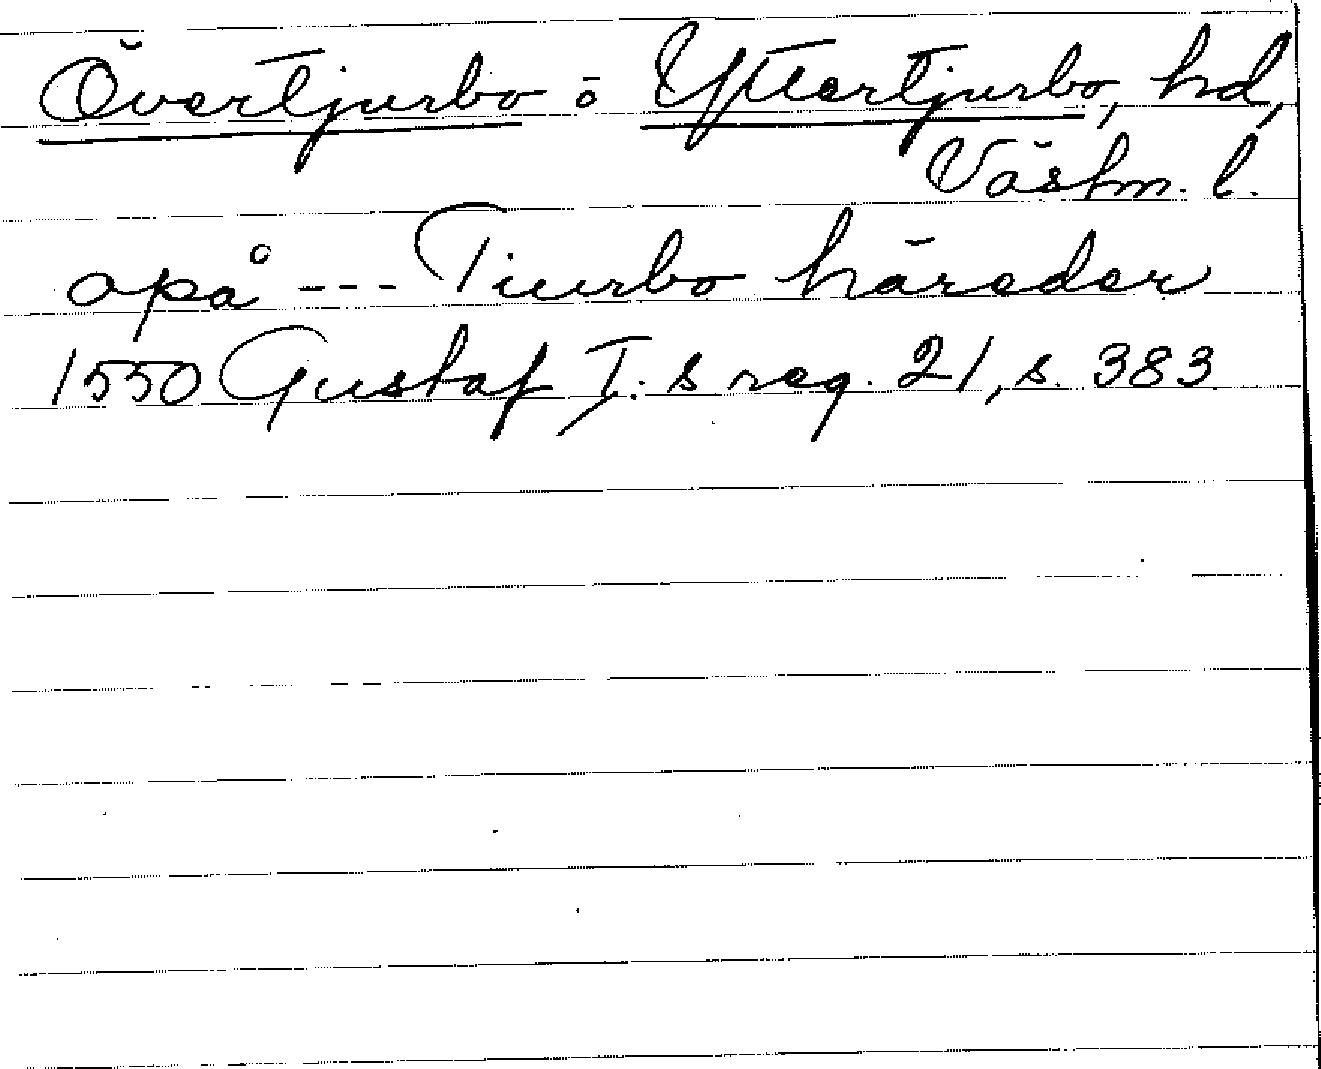 Övertjurbo o Yttertjurbo, hd,
Västm. l.
opå --- Tiurbo häreder
1550 Gustaf I:s reg. 21, s. 383